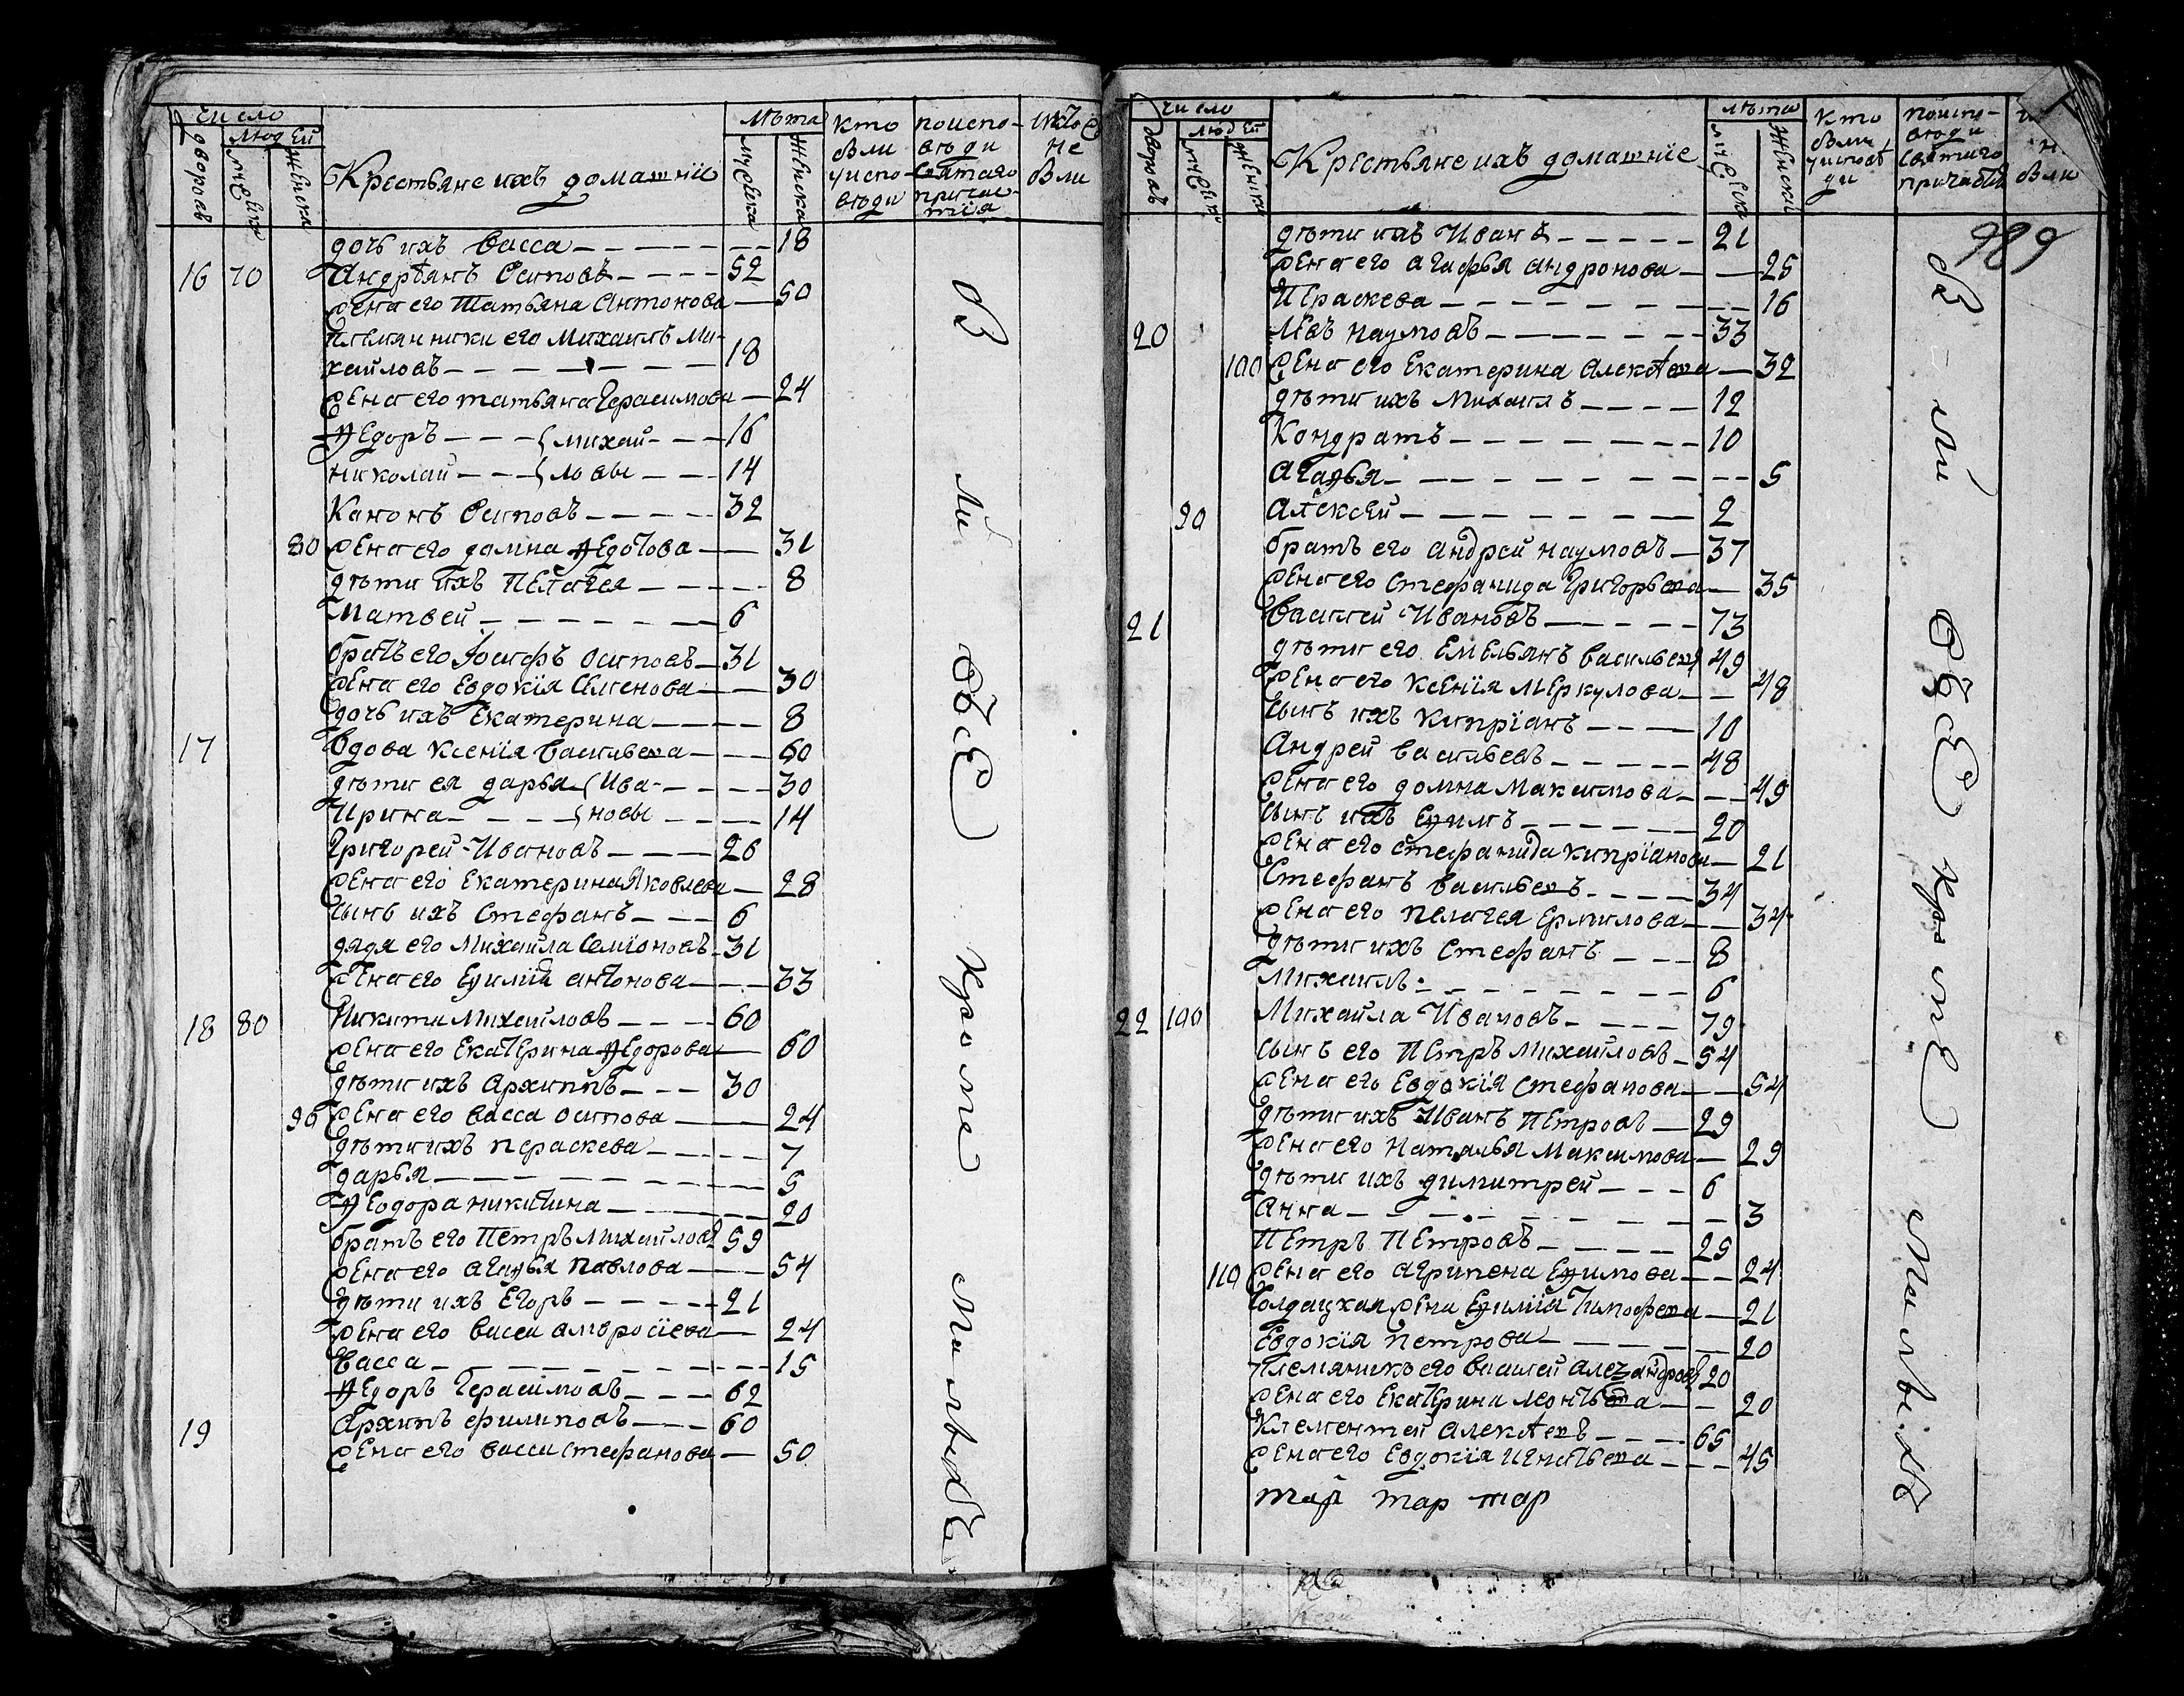 Число
Людей
Лѣта
дворовъ
мужеска
женска
Крестьяне ихъ домашніе
мужеска
женска
кто были у исповѣди
по исповѣди святаго причастія
не были
дочь ихъ Васса 18
16 70 Андрѣянъ Осиповъ 52
жена его Татьяна Антонова 50
племянники его Михаилъ Ми-
хайловъ 18
жена его татьяна Герасимова 24
Ѳедоръ михай- 16
николай ловы 14
Канонъ Осиповъ 32
80 жена его домна Ѳедотова 31
дѣти ихъ Пелагея 8
Матвей 6
братъ его Іосифъ осиповъ 31
жена его Евдокія Семенова 30
дочь ихъ Екатерина 8
17 Вдова Ксенія Васильева 60
дѣти ея дарья Ива- 30
Ирина новы 14
Григорей Ивановъ 26
жена его Екатерина Яковлева 28
сынъ ихъ Стефанъ 6
дядя его Михаила Семіоновъ 31
жена его Еѳимія антонова 33
18 80 Никита Михайловъ 60
жена его Екатерина Ѳедорова 60
дѣти ихъ Архиппъ 30
90 жена его Васса осипова 24
дѣти ихъ параскева 7
дарья 5
Ѳеодора никитина 20
братъ его Петръ Михайловъ 59
жена его агаѳья Павлова 54
дѣти ихъ Егоръ 21
жена его васса амвросіева 24
Васса 15
Ѳедоръ Герасимовъ 62
19 Архипъ филиповъ 60
жена его васса стефанова 50
Бы ли Все кроме Малыхъ
Число
Людей
Лѣта
дворовъ
мужеск
женски
Крестьяне ихъ домашніе
мужеска
женски
кто были у исповѣди
по исповѣди святаго причастія
были
989
дѣти ихъ Иванъ 21
жена его агафья андронова 25
Параскева 16
20 Левъ наумовъ 33
100 жена его Екатерина алексѣева 32
дѣти ихъ Михаилъ 12
Кондратъ 10
агаѳья 5
90 Алексей 2
братъ его андрей наумовъ 37
жена его Стефанида Григорьева 35
21 Василей Ивановъ 73
дѣти его Емельянъ васильевъ 49
жена его ксенія Меркулова 48
сынъ ихъ Кипріанъ 10
Андрей васильевъ 48
жена его домна Максимова 49
сынъ ихъ Еѳимъ 20
жена его стефанида кипріанова 21
Стефанъ васильевъ 34
жена его пелагея Ермилова 34
дѣти ихъ Стефанъ 8
Михаилъ 6
22 100 Михайла Ивановъ 79
сынъ его Петръ Михайловъ 54
жена его Евдокія Стефанова 54
дѣти ихъ Иванъ Петровъ 29
жена его Наталья Максимова 29
дѣти ихъ димитрей 6
Анна 3
Петръ Петровъ 25
110 жена его агрипена Еѳимова 24
Солдацкая жена Еѳимія Тимофеева 21
Евдокія Петрова 20
Племяникъ его Василей алеѯандровъ 20
жена его Екатерина леонтьева 20
Клементей алексѣевъ 65
жена его Евдокія игнатьева 45
тар тар тар
Бы ли Все кроме Малыхъ